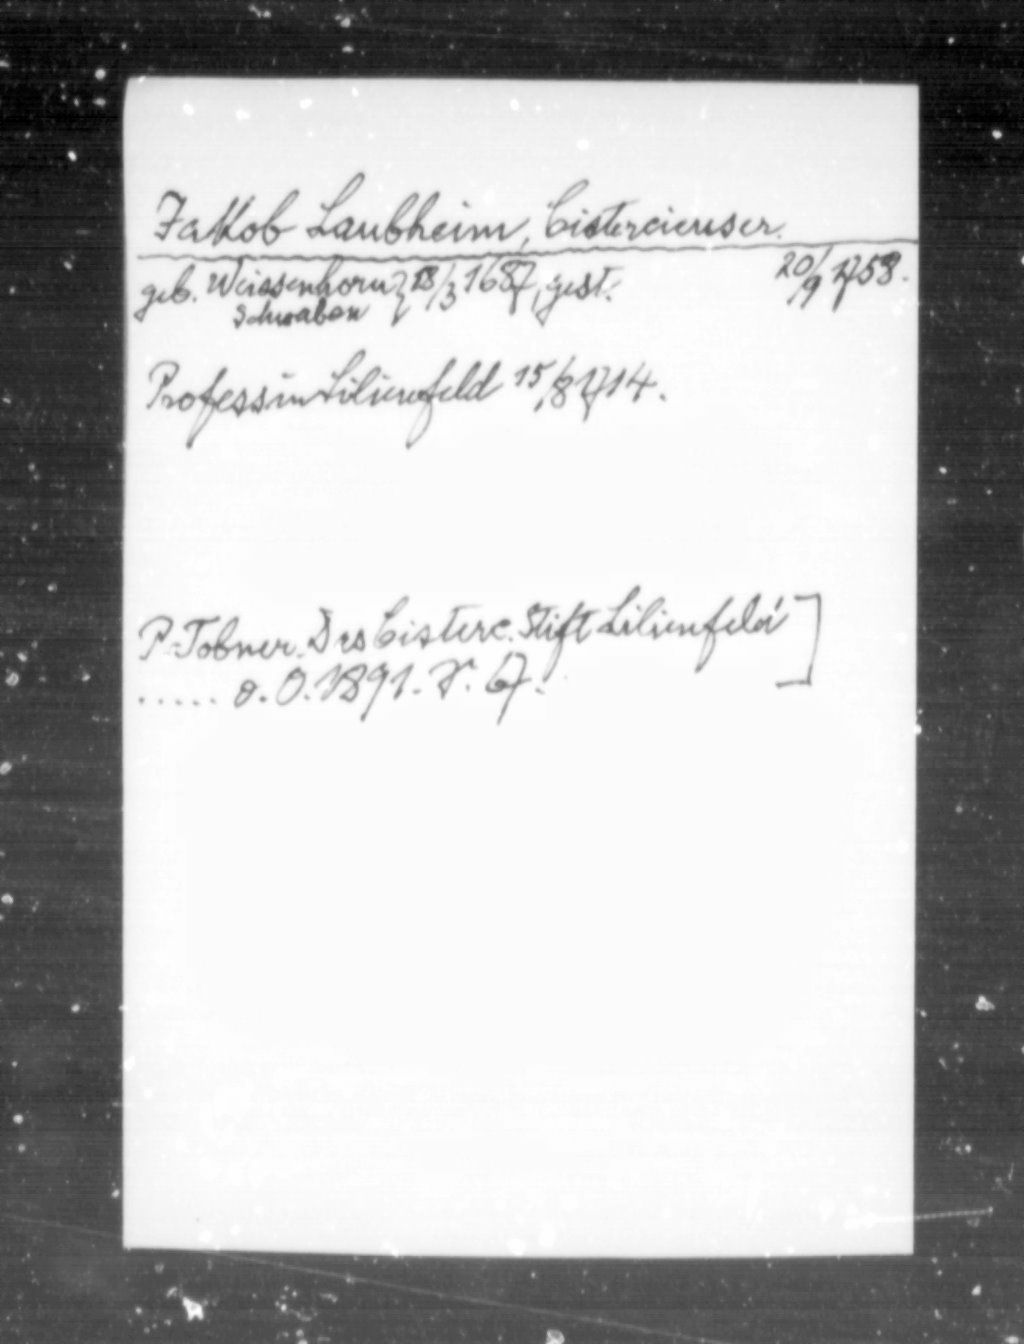 Jakob Laubheim, Cistercienser.
geb. Weissenhorn, 18/3 1687, gest. 20/9 1758.
Schwaben
Profess in Lilienfeld 15/8 1714.
P. Tobner. Das Cisterc. Stift Lilienfeld]
..... o. O. 1891. S. 67.